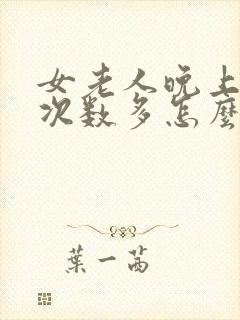 女老人晚上
次数多怎麼
葉一茜